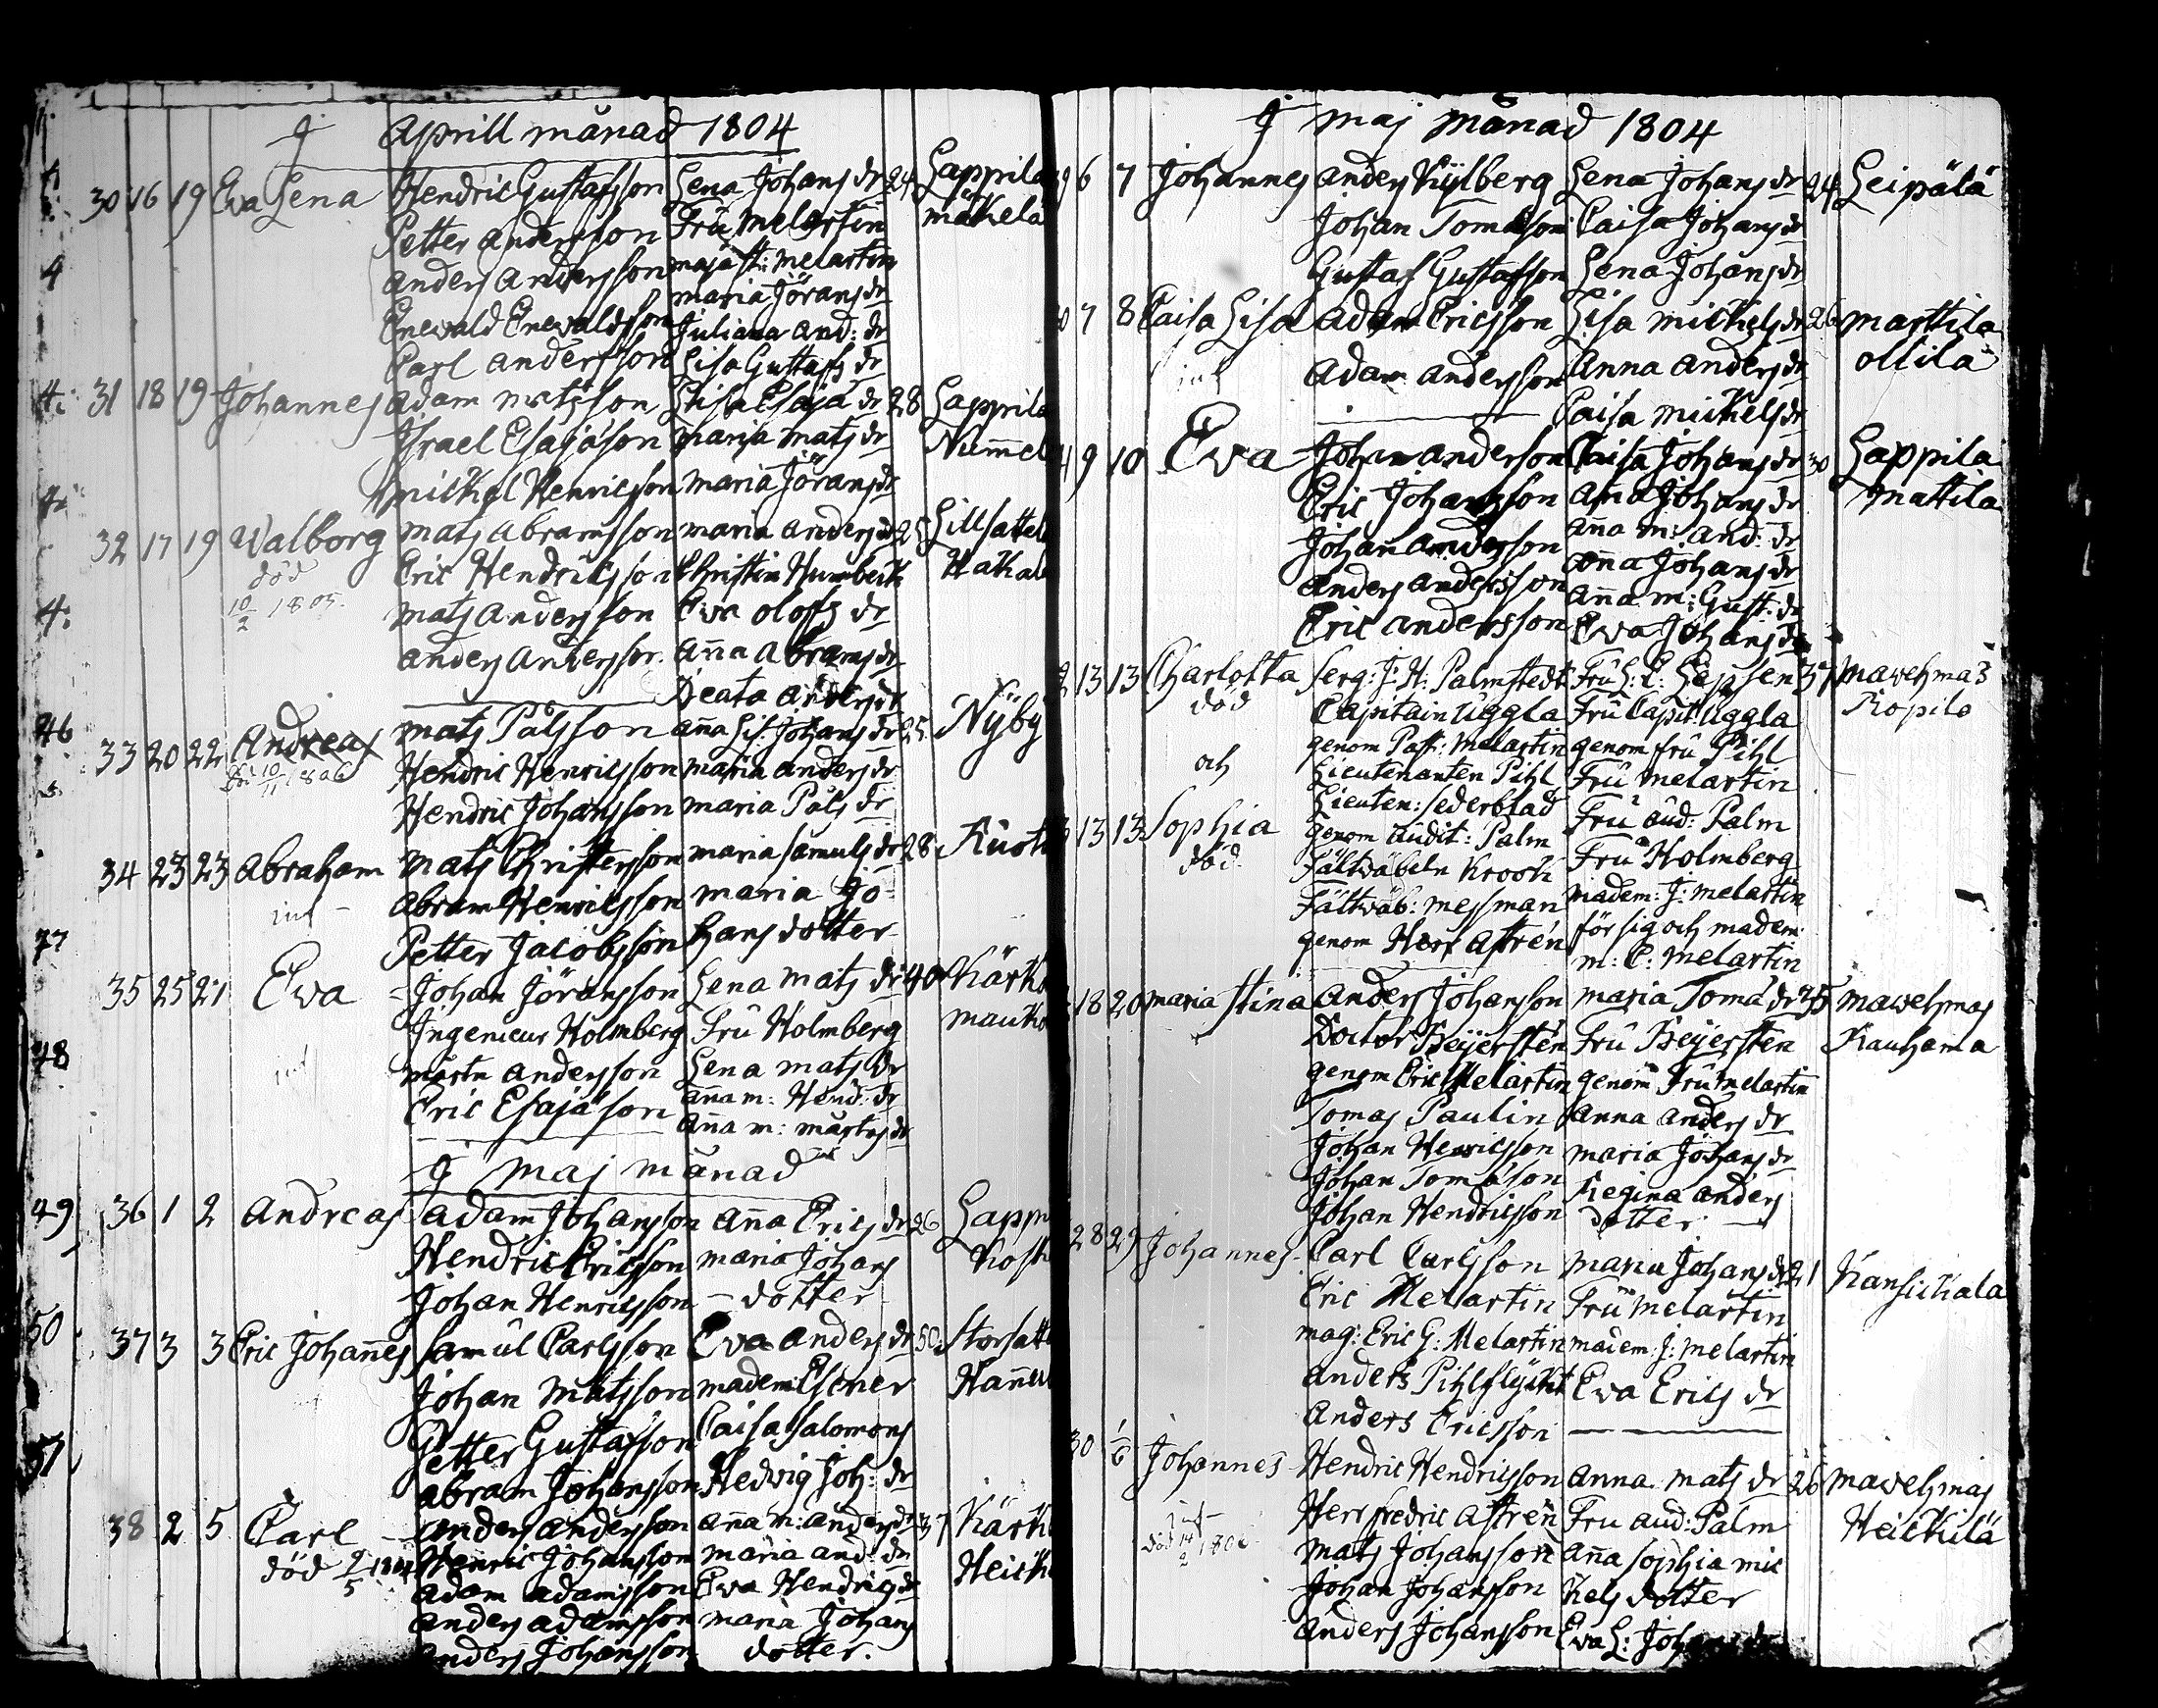 J Aprill månad 1804
30 16 19 Eva Lena Hendric Gustafsson Lena Johans dr 24 Lappila
Petter Andersson Fru Melartin Mäkelä
Anders Andersson Maja St: Melartin
Enewald Enewaldsson Maria Jörans dr
Carl Andersson Juliana And: dr
Lisa Gustafs dr
31 18 19 Johannes Adam Matsson Lisa Esaja dr 28 Lappila
Israel Esajason Maria Mats dr
Michel Henricsson Maria Jörans dr
32 17 19 Walborg Mats Abramsson Maria Anders dr 25
död Eric Hendricsson Christin Humbech
10/2 1805. Mats Andersson Eva Olofs dr
Anders Andersson Anna Abrams dr
Beata Anders dr
33 20 22 Andreas Mats Pålsson Anna Lis. Johans dr 25 Nyby
10/11 1806 Hendric Henricsson Maria Anders dr
Hendric Johansson Maria Påls dr
34 23 23 Abraham Mats Christersson Maria Samuls dr 28
Abram Henricsson Maria Jo
Petter Jacobsson hans dotter
35 25 27 Eva Johan Jöransson Lena Mats dr 40
Ingenieur Holmberg Fru Holmberg
Mårtn Andersson Lena Mats dr
Eric Esajason Anna M: Hend: dr
Anna M: Mårtns dr
J Maj månad
36 1 2 Andreas Adam Johansson Anna Erics dr 26
Hendric Ericsson Maria Johans
Johan Henricsson dotter
37 3 3 Eric Johannes Samul Carlsson Eva Anders dr 50
Johan Matsson Madem Elsner
Petter Gustafsson Caisa Salomons
Abram Johansson Hedvig Joh: dr
38 2 5 Carl Anders Andersson Anna M: Anders dr 37
död 9/5 1804 Henric Johansson Maria And: dr
Adam Adamsson Eva Hendrics dr
Anders Adamsson Maria Johans
Anders Johansson dotter.
J Maj månad 1804
6 7 Johannes Anders Kylberg Lena Johans dr 24 Leipälä
Johan Tomasson Caisa Johans dr
Gustaf Gustafsson Lena Johans dr
7 8 Caisa Lisa Adam Ericsson Lisa Michels dr 26 Marttila
Adam Andersson Anna Anders dr Ollila
Caisa Michels dr
9 10 Eva Johan Anderson Caisa Johans dr 30 Lappila
Eric Johansson Anna Johans dr Mattila
Johan Andersson Anna M: And: dr
Anders Andersson Anna Johans dr
Eric Andersson Anna M: Gust: dr
Eva Johans dr
13 13 Charlotta Serg: J: H: Palmstedt Fru 37 Mawehmas
död Capitain Uggla Fru Capit: Uggla
genom Past: Melartin genom fru Pihl
och Lieutenanten Pihl Fru Melartin
Lieuten: Sederblad Fru Aud: Palm
13 13 Sophia genom Audit: Palm Fru Holmberg
död Fältwäbeln Krook Madem: J: Melartin
Fältwäb: Messman för sig och madem:
genom Herr Astrén M: C: Melartin
18 20 Maria Stina Anders Johansson Maria Toma dr 35 Mawehmas
Doctor Beijerstén Fru Beijersten Kauhama
genom Eric Melartin genom Fru Melartin
Tomas Paulin Anna Anders dr
Johan Henricsson Maria Johans dr
Johan Tomason Regina Anders
Johan Hendricsson dotter
28 29 Johannes Carl Carlsson Maria Johans dr 21 Kansickala
Eric Melartin Fru Melartin
Mag: Eric G: Melartin Madem: J: Melartin
Anders Pihlflyckt Eva Erics dr
Anders Ericsson
30 1/6 Johannes Hendric Hendricsson Anna Mats dr 26 Mawehmas
Herr Fredric Astrén Fru Aud: Palm Heickilä
död 14/2 1806 Mats Johansson Anna Sophia Mic
Johan Johansson kels dotter
Anders Johansson Eva L: Johans dr